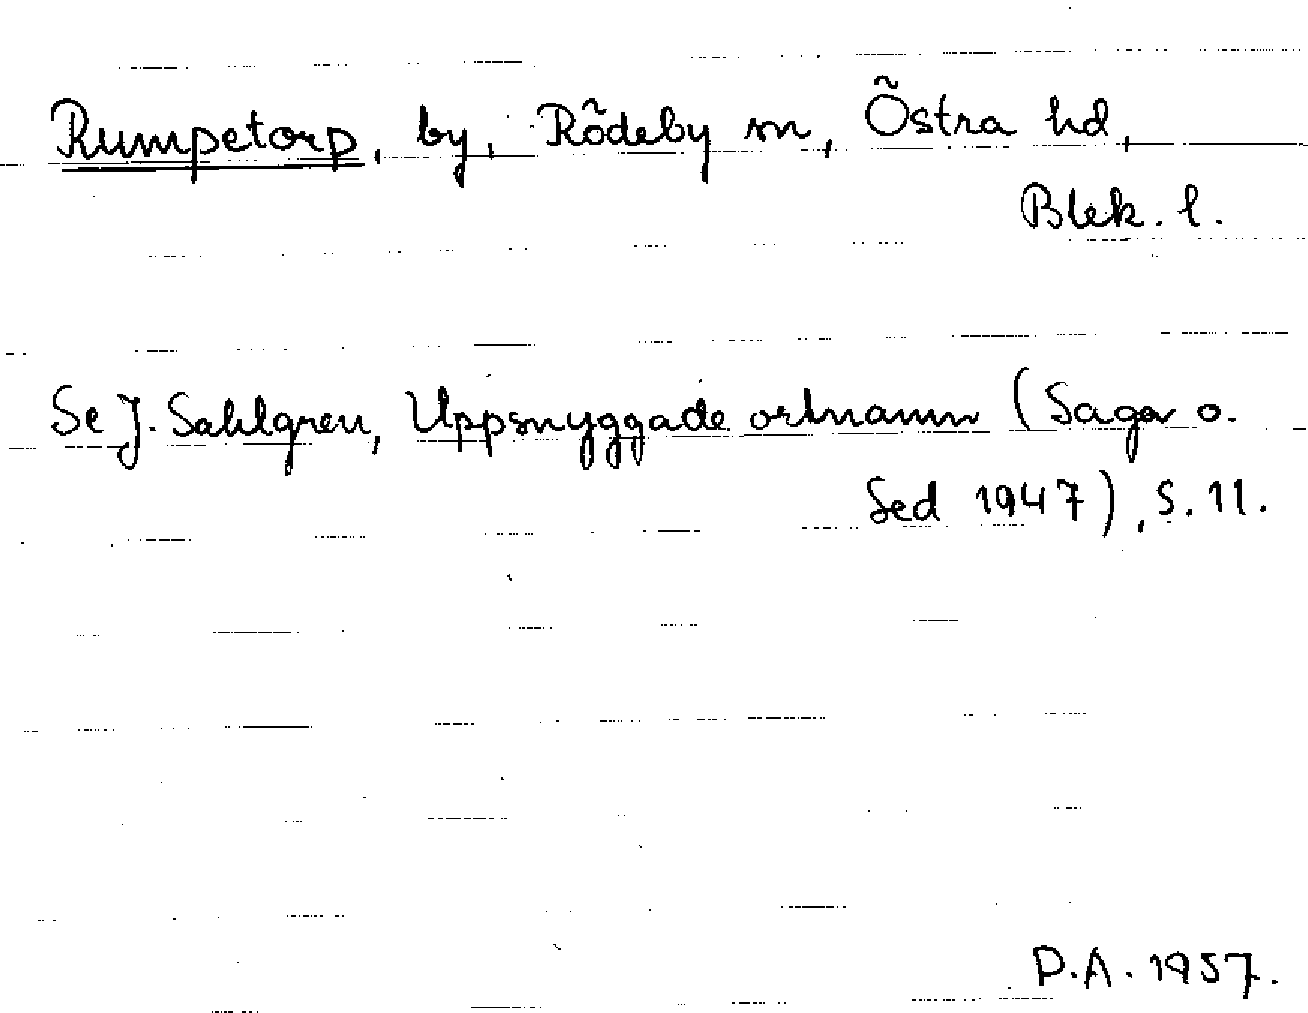 Rumpetorp, by, Rödeby sn, Östra hd,
Blek. l.
Se J. Sahlgren, Uppsnyggade ortnamn (Saga o.
Sed 1947), s. 11.
D.A. 1957.